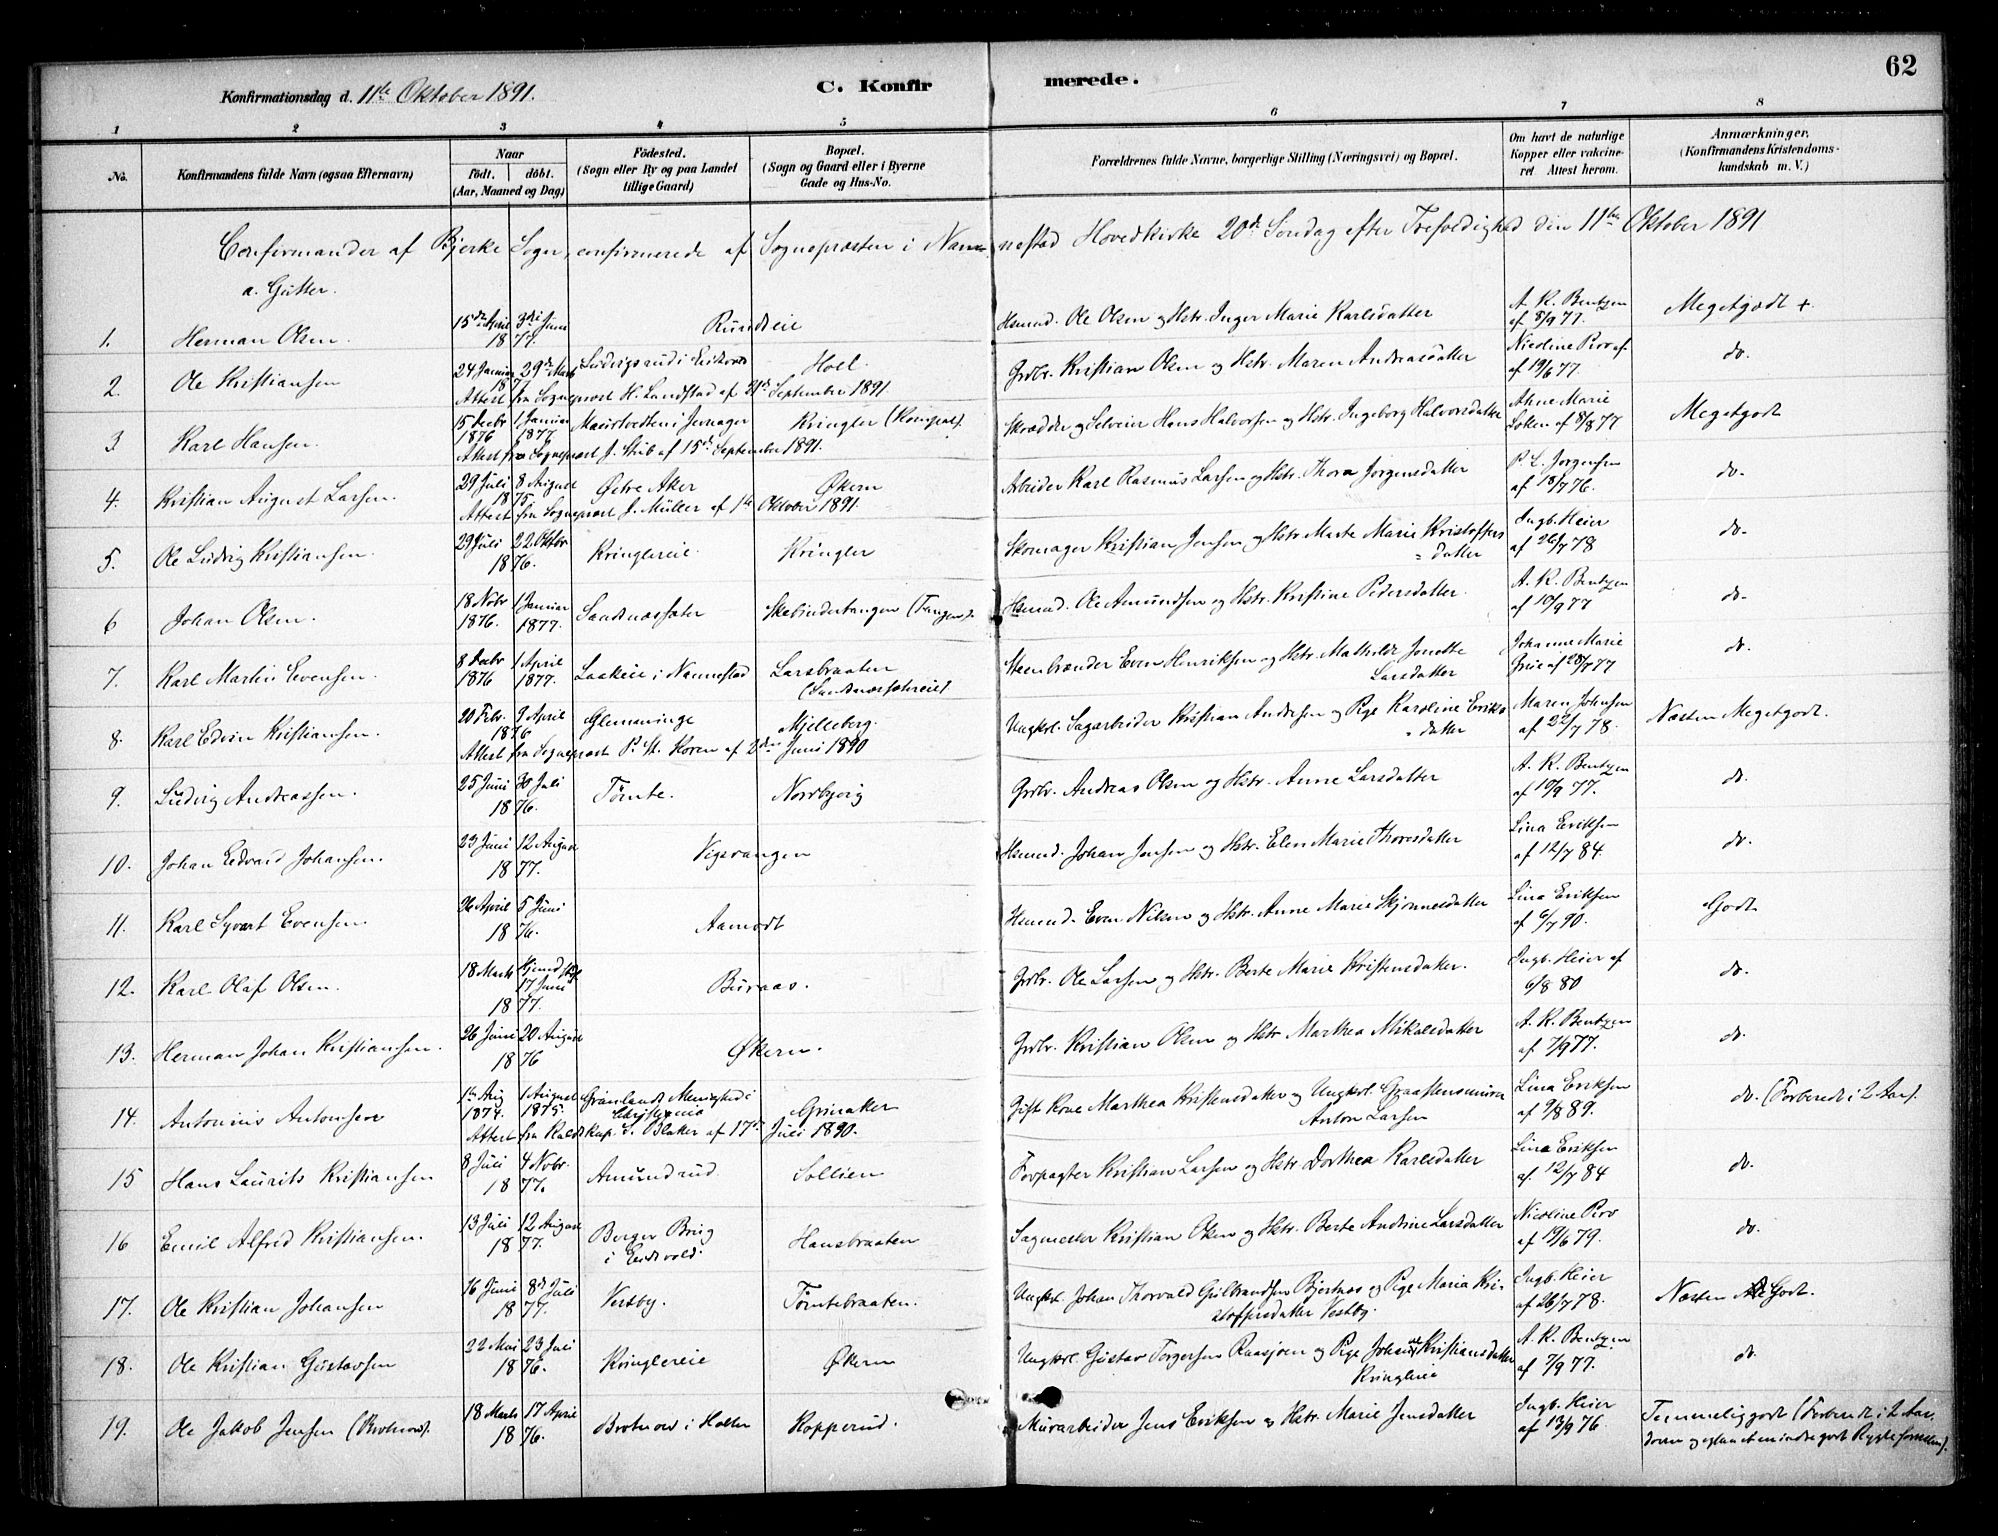 62
Konfirmationsdag d. 11te Oktober 1891.
C. Konfir merede.
1 2 3 4 5 6 7 8
No.
Konfirmandens fulde Navn (ogsaa Efternavn)
Naar
födt. döbt.
(Aar, Maaned og Dag)
Födested.
(Sogn eller By og paa Landet
tillige Gaard)
Bopæl.
(Sogn og Gaard eller i Byerne
Gade og Hus-No.
Forældrenes fulde Navne, borgerlige Stilling (Næringsvei) og Bopæl.
Om havt de naturlige
Kopper eller vakcine-
ret. Attest herom.
Anmærkninger.
(Konfirmandens Kristendoms-
kundskab m. V.)
Confirmander af Bjerke Sogn, confirmerede af Sognepræsten i Nannestad Hovedkirke 20de Søndag efter Trefoldighed den 11te Oktober 1891
a. Gutter.
1. Herman Olsen 15de April 3die Juni 1877. Rundteie Hsmnd. Ole Olsen og Hstr. Inger Marie Karlsdatter A. K. Bentzen af 8/9 77. Megetgodt +
2 Ole Kristiansen 24 Januar 29de Marts 1877 Ludvigsrud i Hoel. Grdbr. Kristian Olsen og Hstr. Maren Andreasdatter Nicoline Piro af. af 19/6 77. do.
Attest fra Sogneprest H. Landstad af 21de September 1891.
3 Karl Hansen. 15 Decbr 1876 1 Januar 1877 i Jevnager Kringler Skrædder og Selveier Hans Halvorsen og Hstr. Ingeborg Halvorsdatter Anne Marie Løken af 8/8 77 Megetgodt
Attest fra Sogneprest J. Stub af 15de September 1891.
4. Kristian August Larsen. 29 Juli 8 August 1875. Østre Aker Økern Arbeider Karl Rasmus Larsen og Hstr. Thora Jørgensdatter P. L. Jørgensen af 18/7 76. do.
Attest fra Sogneprest J. Müller af 1ste Oktober 1891.
5. Ole Ludvig Kristiansen. 29 Juli 22 Oktbr 1876. Kringlereie. Kringler Skomager Kristian Jensen og Hstr. Marte Marie Kristoffers=datter Ingb. Heier af 26/7 78 do.
6 Johan Olsen. 18 Novbr 1876. 1 Januar 1877. Sandnæssæter Skebindertangen (Tangen). Hsmnd. Ole Amundsen og Hstr. Kristine Pedersdatter. A. K. Bentzen af 10/9 77 do.
7. Karl Martin Evensen. 8 Decbr 1876 1 April 1877. Laakeie i Nannestad Larsbraaten (Sandnæssætereie) Steenbrænder Even Henriksen og Hstr. Mathilde Jonette Larsdatter Johanne Marie Grüe af 28/7 77 do.
8. Karl Edvin Kristiansen. 20 Febr. 9 April 1876 Glemminge Mjelleberg. Ungkrl. Sagarbeider Kristian Andersen og Pige Karoline Eriks=datter Maren Johnsen af 22/7 78. Næsten Megetgodt.
Attest fra Sogneprest P. M. Koren af 2den Juni 1890
9. Ludvig Andreassen. 25 Juni 30 Juli 1876. Tømte. Nordbjerig Grdbr. Andreas Olsen og Hstr. Anne Larsdatter A. K. Bentzen af 10/9 77. do.
10. Johan Edvard Johansen. 23 Juni 12 August 1877. Vigsvangen Hsmnd. Johan Jensen og Hstr. Elen Marie Thoresdatter Lina Eriksen af 12/7 84. do.
11. Karl Syvert Evensen. 26 April 5 Juni 1876. Aamodt Hsmnd. Even Nilsen og Hstr. Anne Marie Skjønnesdatter Lina Eriksen af 6/7 90. Godt
12. Karl Olaf Olsen. 18 Marts Hjemd. 17 Juni 1877. Buraas. Grdbr. Ole Larsen og Hstr. Berte Marie Kristensdatter. Ingb. Heier af 6/8 80 do.
13. Herman Johan Kristiansen. 26 Juni 20 August 1876 Økern. Grdbr. Kristian Olsen og Hstr. Marthea Mikalsdatter A. K. Bentzen af 7/9 77. do.
14. Antonius Antonsen 1te Aug 1874. 1 August 1875. Grønlands Menighed i Christiania Grinaker Gift Kone Marthea Kristensdatter og Ungkrl. Graastensmurer Anton Larsen Lina Eriksen af 9/8 89. do. (Forberedt i 2 Aar).
Attest fra Kap. S. Blaker af 17de Juli 1890.
15 Hans Laurits Kristiansen 8 Juli 4 Nobr. 1877. Amundrud Sollien Forpagter Kristian Larsen og Hstr. Dorthea Karlsdatter Lina Eriksen af. 12/7 84 do.
16 Emil Alfred Kristiansen. 13 Juli 12 August 1877. Berger Brug i Eidsvold. Hansbraaten Sagmester Kristian Olsen og Hstr. Berte Andrine Larsdatter Nicoline Piro af 19/6 79. do.
17. Ole Kristian Johansen 16 Juni 8de Juli 1877. Vestby. Tömtebraaten. Ungkrl. Johan Thorvald Gulbrandsen Bjertnæs og Pige Maria Kristoffersdatter Vestby. Ingb. Heier af 26/7 78. Næsten Godt.
18. Ole Kristian Gustavsen 22 Mai 23 Juli 1876. Kringlereie Økern Ungkrl. Gustav Torgersen Raasjøen og Pige Johanne Kristiansdatter Kringlereie A. K. Bentzen af 7/9 77. do.
19. Ole Jakob Jensen (Brotnow). 18 Marts 17 April 1876. Brotnow i Holter Kopperud. Murarbeider Jens Eriksen og Hstr. Marie Jensdatter Ingb. Heier af 13/9 76 Temmelig godt (Forberedt i 2 Aar,